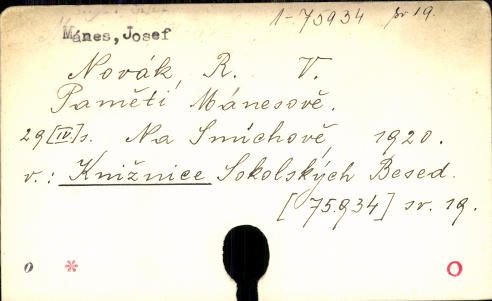 1-75934 sv 19.
Mánes, Josef
Novák, R. V.
Paměti Mánesově.
29 [IV] s. Na Smíchově, 1920.
v.: Knižnice Sokolských Besed.
[75.934] sv. 19.
0 * O